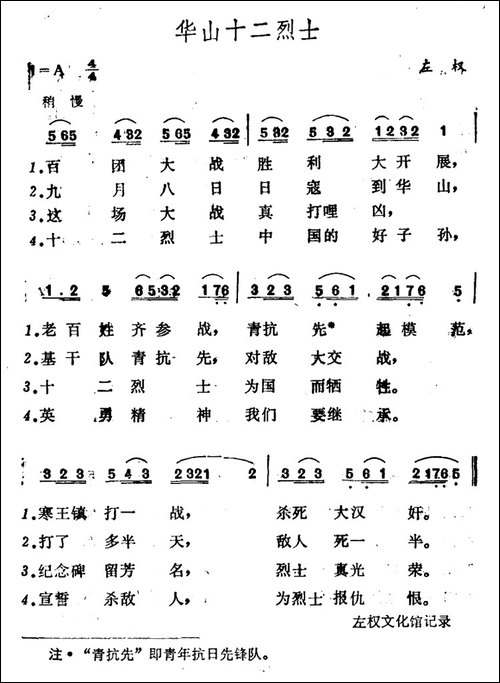 华山十二烈士
1=A 4/4
左权
稍慢
565 432 565 432 | 532 532 1232 1
1.百团大战胜利大开展,
2.九月八日日寇到华山,
3.这场大战真打哩凶,
4.十二烈士中国的好子孙,
1.2 5 65532 176 | 323 561 2176 5
1.老百姓齐参战,青抗先*起模范。
2.基干队青抗先,对敌大交战,
3.十二烈士为国而牺牲。
4.英勇精神我们要继承。
323 543 2321 2 | 323 561 21765
1.寒王镇打一战,杀死大汉奸。
2.打了多半天,敌人死一半。
3.纪念碑留芳名,烈士真光荣。
4.宣誓杀敌人,为烈士报仇恨。
左权文化馆记录
注*“青抗先”即青年抗日先锋队。